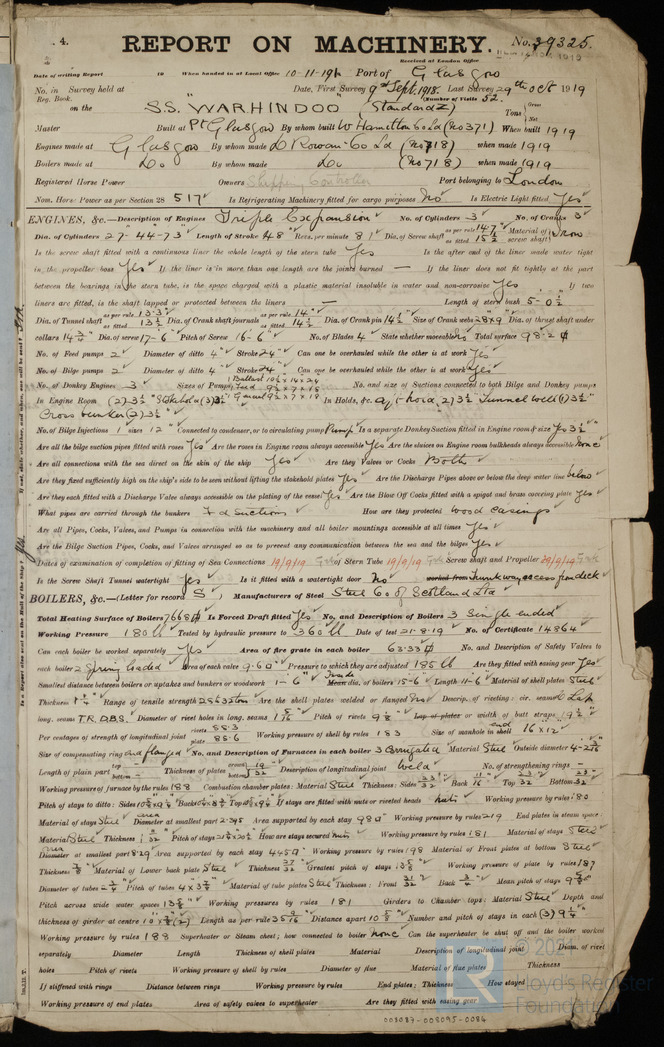 4.
REPORT ON MACHINERY.
No. 39325.
Received at London Office
Date of writing Report 19 When handed in at Local Office 10-11-19 Port of Glasgow
No. in Survey held at Date, First Survey 9th Sept. 1918. Last Survey 29th Oct 1919
Reg. Book. (Number of Visits 52.
on the S.S. "WARHINDOO" (Standard Z) Tons Gross Net
Master Built at Pt Glasgow By whom built W Hamilton & Co Ld (No 371) When built 1919
Engines made at Glasgow By whom made D Rowan & Co Ld (No 718) when made 1919
Boilers made at Do By whom made Do (No 718) when made 1919
Registered Horse Power Owners Shipping Controller Port belonging to London
Nom. Horse Power as per Section 28 517 Is Refrigerating Machinery fitted for cargo purposes No Is Electric Light fitted Yes
ENGINES, &c.—Description of Engines Triple Expansion No. of Cylinders 3 No. of Cranks 3
Dia. of Cylinders 27-44-73 Length of Stroke 48 Revs. per minute 81 Dia. of Screw shaft as per rule as fitted 15½ Material of screw shaft Iron
Is the screw shaft fitted with a continuous liner the whole length of the stern tube Yes Is the after end of the liner made water tight
in the propeller boss Yes If the liner is in more than one length are the joints burned — If the liner does not fit tightly at the part
between the bearings in the stern tube, is the space charged with a plastic material insoluble in water and non-corrosive Yes If two
liners are fitted, is the shaft lapped or protected between the liners — Length of stern bush 5-0½
Dia. of Tunnel shaft as per rule as fitted 13½ Dia. of Crank shaft journals as per rule 14 as fitted 14½ Dia. of Crank pin 14½ Size of Crank webs 28x9 Dia. of thrust shaft under
collars 14¾ Dia. of screw 17-6 Pitch of Screw 16-6 No. of Blades 4 State whether moveable No Total surface 98.2
No. of Feed pumps 2 Diameter of ditto 4 Stroke 24 Can one be overhauled while the other is at work Yes
No. of Bilge pumps 2 Diameter of ditto 4 Stroke 24 Can one be overhauled while the other is at work Yes
No. of Donkey Engines 3 Sizes of Pumps 1 Ballast 10½x14x24 1 Feed 9½x7x18 1 General 9½x7x18 No. and size of Suctions connected to both Bilge and Donkey pumps
In Engine Room (2) 3½" Stokehold (3) 3½" In Holds, &c. Aft hold, 2) 3½" Tunnel well (1) 3½"
Cross bunker (2) 3½"
No. of Bilge Injections 1 sizes 12" Connected to condenser, or to circulating pump Pump Is a separate Donkey Suction fitted in Engine room & size Yes 3½"
Are all the bilge suction pipes fitted with roses Yes Are the roses in Engine room always accessible Yes Are the sluices on Engine room bulkheads always accessible None
Are all connections with the sea direct on the skin of the ship Yes Are they Valves or Cocks Both
Are they fixed sufficiently high on the ship's side to be seen without lifting the stokehold plates Yes Are the Discharge Pipes above or below the deep water line below
Are they each fitted with a Discharge Valve always accessible on the plating of the vessel Yes Are the Blow Off Cocks fitted with a spigot and brass covering plate Yes
What pipes are carried through the bunkers Fd suctions How are they protected Wood casings
Are all Pipes, Cocks, Valves, and Pumps in connection with the machinery and all boiler mountings accessible at all times Yes
Are the Bilge Suction Pipes, Cocks, and Valves arranged so as to prevent any communication between the sea and the bilges Yes
Dates of examination of completion of fitting of Sea Connections 19/9/19 of Stern Tube 19/9/19 Screw shaft and Propeller 29/9/19
Is the Screw Shaft Tunnel watertight Yes Is it fitted with a watertight door No worked from Trunkway access from deck
BOILERS, &c.—(Letter for record S) Manufacturers of Steel Steel Co of Scotland Ltd
Total Heating Surface of Boilers 7668 Is Forced Draft fitted Yes No. and Description of Boilers 3 Single ended
Working Pressure 180 lb Tested by hydraulic pressure to 360 lb Date of test 21.8.19 No. of Certificate 14864
Can each boiler be worked separately Yes Area of fire grate in each boiler 63.33 No. and Description of Safety Valves to
each boiler 2 Spring loaded Area of each valve 9.60 Pressure to which they are adjusted 185 lb Are they fitted with easing gear Yes
Smallest distance between boilers or uptakes and bunkers or woodwork 1-6 Inside Mean dia. of boilers 15-6 Length 11-6 Material of shell plates Steel
Thickness 1¼ Range of tensile strength 28 to 32 tons Are the shell plates welded or flanged No Descrip. of riveting: cir. seams D Lap
long. seams T.R.D.B.S. Diameter of rivet holes in long. seams Pitch of rivets 9⅝ Lap of plates or width of butt straps
Per centages of strength of longitudinal joint rivets 88.3 plate 85.6 Working pressure of shell by rules 183 Size of manhole in shell end 16"x12"
Size of compensating ring End flanged No. and Description of Furnaces in each boiler 3 Corrugated Material Steel Outside diameter
Length of plain part top bottom Thickness of plates crown 19 bottom 32 Description of longitudinal joint Weld No. of strengthening rings —
Working pressure of furnace by the rules 188 Combustion chamber plates: Material Steel Thickness: Sides 23/32 Back 11/16 Top 23/32 Bottom 23/32
Pitch of stays to ditto: Sides Back Top If stays are fitted with nuts or riveted heads Nuts Working pressure by rules 180
Material of stays Steel area Diameter at smallest part 2.395 Area supported by each stay 98 Working pressure by rules 219 End plates in steam space
Material Steel Thickness Pitch of stays How are stays secured Nuts Working pressure by rules 181 Material of stays Steel
area Diameter at smallest part 8.29 Area supported by each stay 445 Working pressure by rules 198 Material of Front plates at bottom Steel
Thickness Material of Lower back plate Steel Thickness 27/32 Greatest pitch of stays Working pressure of plate by rules 187
Diameter of tubes Pitch of tubes Material of tube plates Steel Thickness: Front 31/32 Back ¾ Mean pitch of stays
Pitch across wide water spaces Working pressures by rules 181 Girders to Chamber tops: Material Steel Depth and
thickness of girder at centre Length as per rule Distance apart Number and pitch of stays in each (3) 9¼"
Working pressure by rules 188 Superheater or Steam chest; how connected to boiler None Can the superheater be shut off and the boiler worked
separately Diameter Length Thickness of shell plates Material Description of longitudinal joint Diam. of rivet
holes Pitch of rivets Working pressure of shell by rules Diameter of flue Material of flue plates Thickness
If stiffened with rings Distance between rings Working pressure by rules End plates: Thickness How stayed
Working pressure of end plates Area of safety valves to superheater Are they fitted with easing gear
003087-003095-0084
LR
© 2021
Lloyd's Register
Foundation